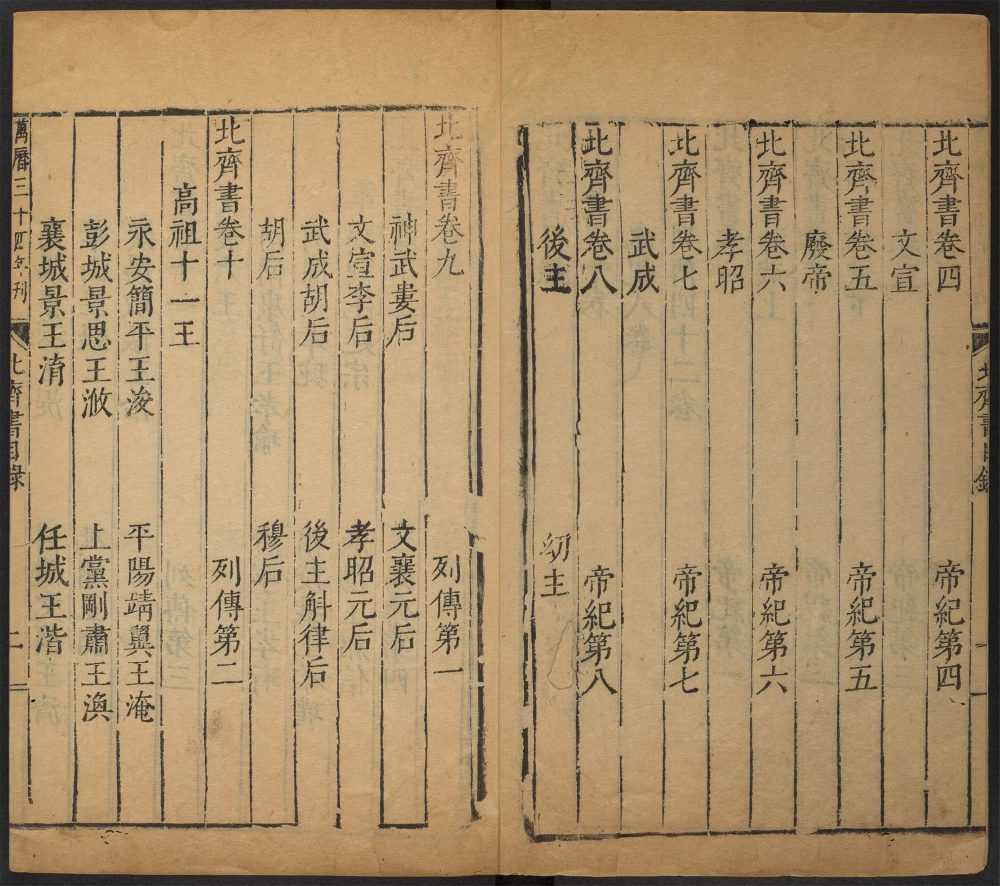 北齊書卷四 帝紀第四
文宣
北齊書卷五 帝紀第五
廢帝
北齊書卷六 帝紀第六
孝昭
北齊書卷七 帝紀第七
武成
北齊書卷八 帝紀第八
後主 幼主
北齊書卷九 列傳第一
神武婁后 文襄元后
文宣李后 孝昭元后
武成胡后 後主斛律后
胡后 穆后
北齊書卷十 列傳第二
高祖十一王
永安簡平王浚 平陽靖翼王淹
彭城景思王浟 上黨剛肅王渙
襄城景王淯 任城王湝
萬曆三十四年刊 北齊書目錄 二